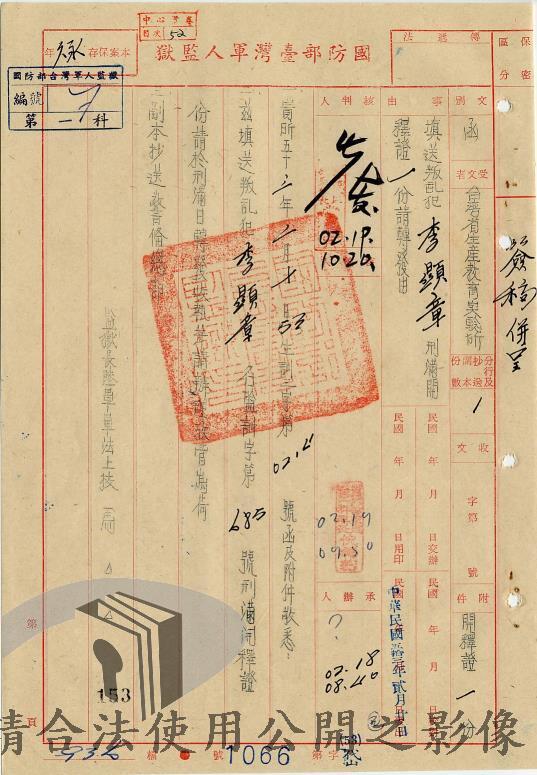 國防部臺灣軍人監獄
中心參考
目次 52
本案保存 永 年
國防部台灣軍人監獄
編號
第一科
保密區分
傳遞法
簽稿併呈
文別 函
受文者 台灣省生產教育實驗所
分行及抄送本數份 1
收文 字第 號
附件 開釋證一份
事由
填送叛亂犯李顯章刑滿開
釋證一份請轉發由
民國 年 月 日交辦
民國 年 月 日用印
民國 年 月
中華民國 年貳月
核判人
02.19.
10.20.
02.19
09.50
承辦人
?
02.18
08.40
貴所五十三年二月十日53生 字第 02.4 號函及附件敬悉：
二、茲填送叛亂犯李顯章名 字第 685 號刑滿開釋證
一份請於刑滿日轉發
三、副本抄送警備總部
監獄長陸軍軍法上校 周
153
第 頁
檔號 1066 字第 號
(53)
請合法使用公開之影像